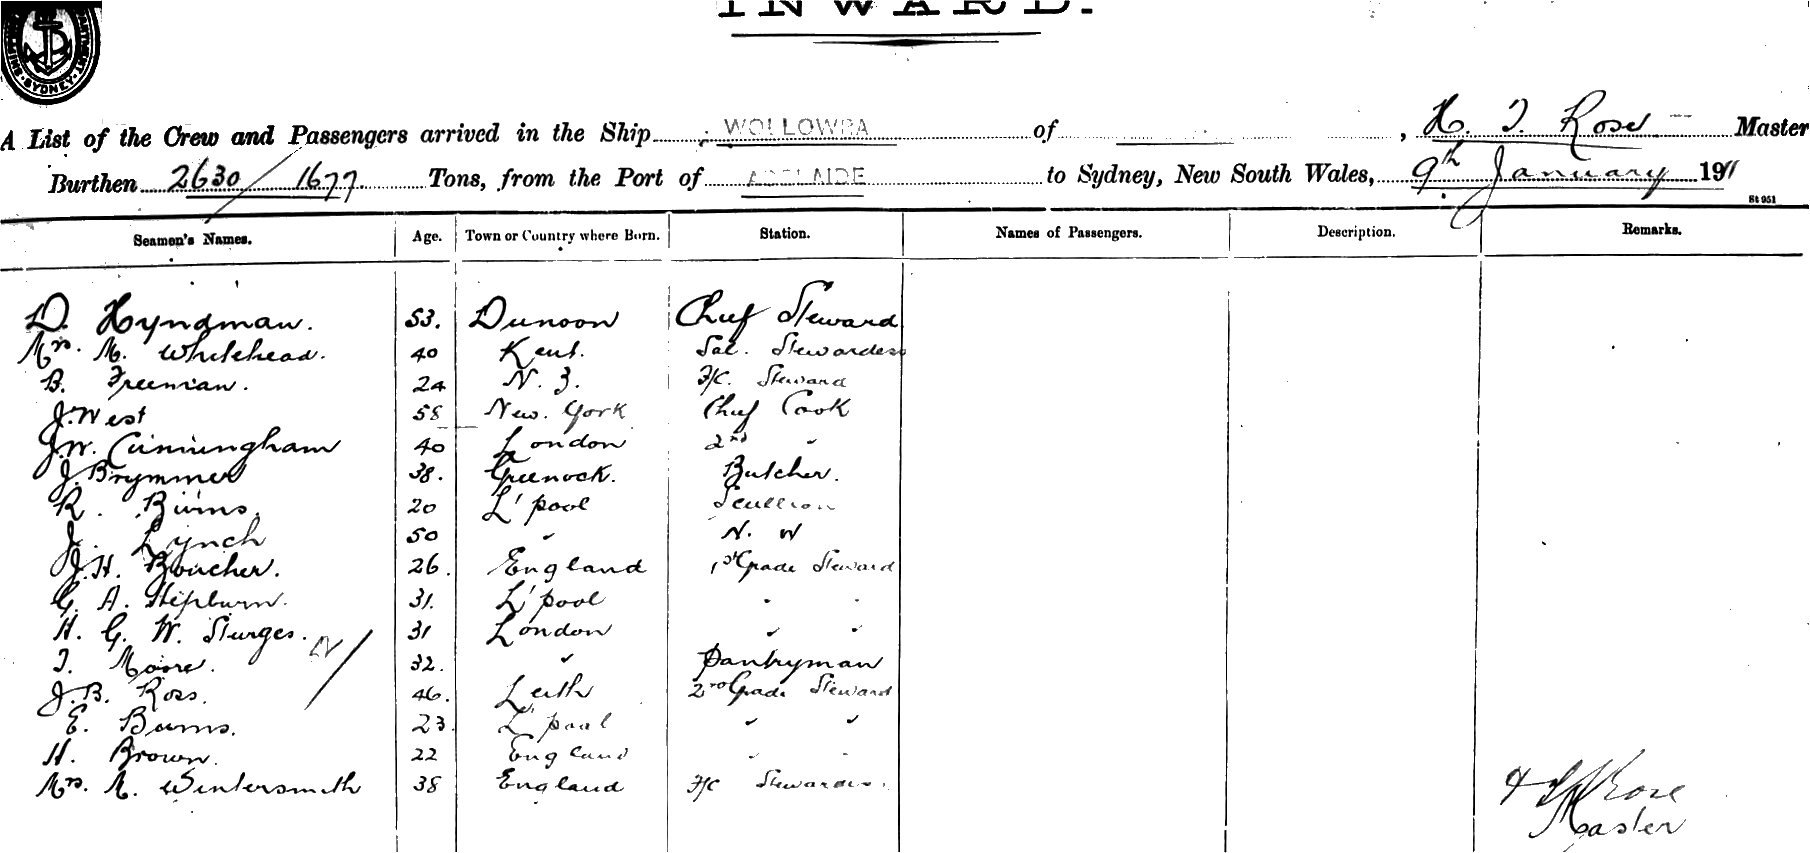 INWARD.
SYDNEY
A List of the Crew and Passengers arrived in the Ship WOLLOWRA of , H. T. Rose Master
Burthen 2630/1677 Tons, from the Port of ADELAIDE to Sydney, New South Wales, 9th January 1911
St 951
Seamen's Names. Age. Town or Country where Born. Station. Names of Passengers. Description. Remarks.
D. Hyndman. 53. Dunoon Chief Steward
Mrs. M. Whitehead. 40 Kent. Sal. Stewardess
B. Freeman. 24 N. Z. F/C. Steward
J. West 58 New. York Chief Cook
J. W. Cunningham 40 London 2nd "
J. Brymmer 38. Greenock. Butcher.
R. Burns. 20 L'pool Scullion
J. Lynch 50 " N. W
J. H. Boucher. 26. England 1st Grade Steward
G. A. Hepburn. 31. L'pool " "
H. G. W. Sturges. 31 London " "
T. Moore. 32. " Pantryman
J. B. Ross. 46. Leith 2nd Grade Steward
E. Burns. 23. L'pool " "
H. Brown. 22 England " "
Mrs. M. Wintersmith 38 England F/C Stewardess.
Rose
Master